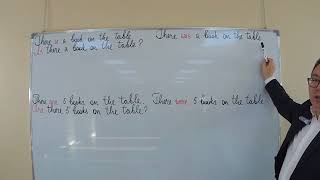 There is a book on the table.
Is there a book on the table?
There was a book on the table.
There are 5 books on the table.
Are there 5 books on the table?
There were 5 books on the table